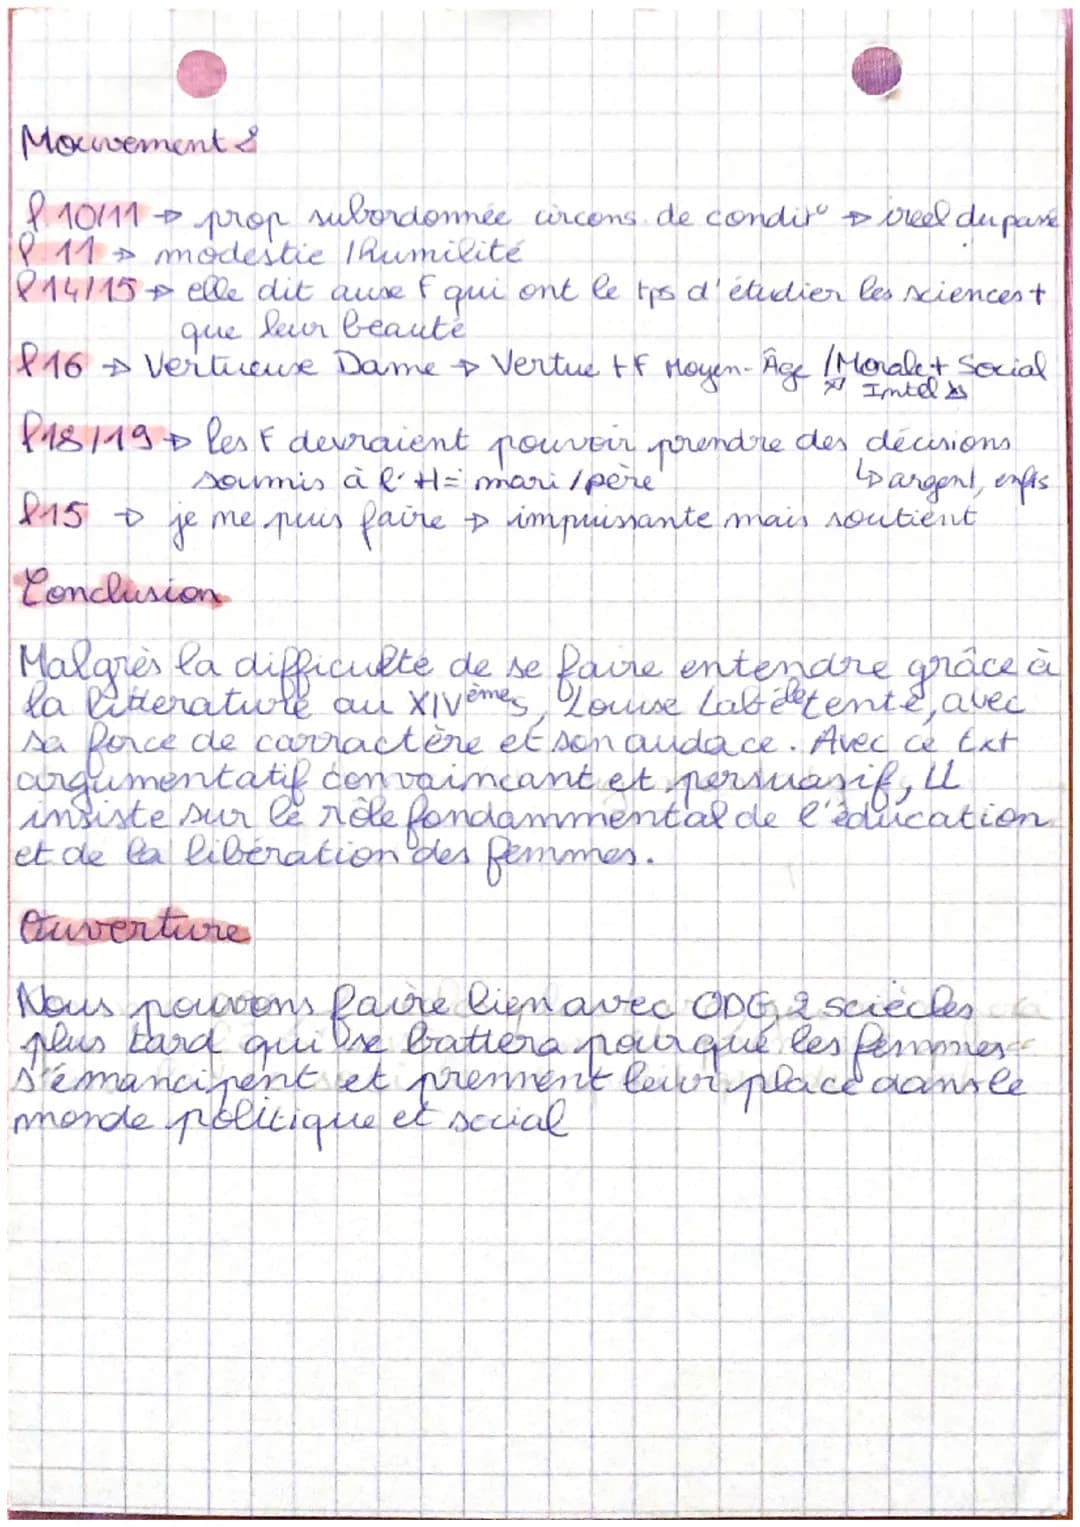 Mouvement 2
l.10/11 → prop subordonnée circons. de condit° → iréel du passé
l.11 → modestie / humilité
l.14/15 → elle dit aux F qui ont le tps d'étudier les sciences +
que leur beauté
l.16 → Vertueuse Dame → Vertue + F Moyen-Âge / Morale + Social
Intel
l.18/19 → les F devraient pouvoir prendre des décisions
soumis à l'H = mari / père ↳ argent, enfts
l.15 → je me puis faire → impuissante mais soutient
Conclusion
Malgrès la difficulté de se faire entendre grâce à
la litterature au XIVème s, Louise Labé le tente, avec
sa force de carractère et son audace. Avec ce txt
argumentatif convaincant et persuasif, LL
insiste sur le rôle fondammental de l'éducation
et de la libération des femmes.
Ouverture
Nous pouvons faire lien avec ODG, 2 sciècles
plus tard qui se battera pour que les femmes
s'émancipent et prennent leur place dans le
monde politique et social